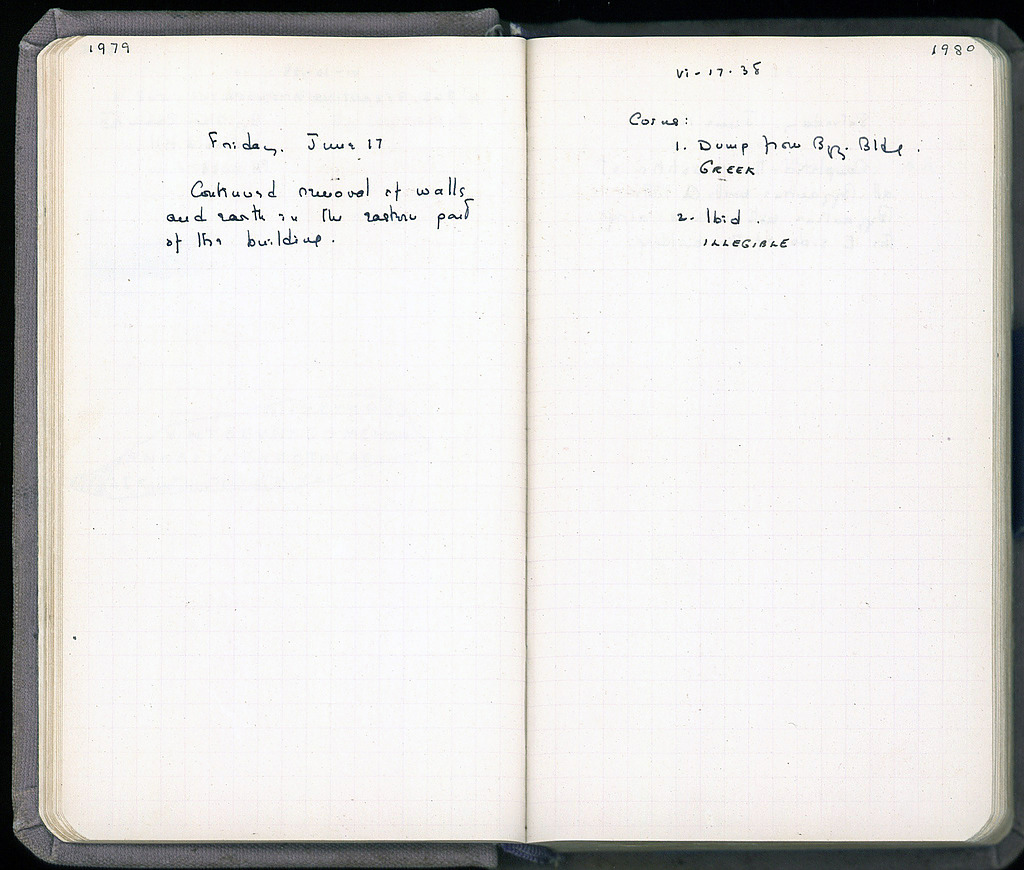 1979
Friday, June 17
Continued removal of walls
and earth in the eastern part
of the building.
1980
VI-17-38
Coins:
1. Dump from Byz. Bldg.
GREEK
2. Ibid.
ILLEGIBLE